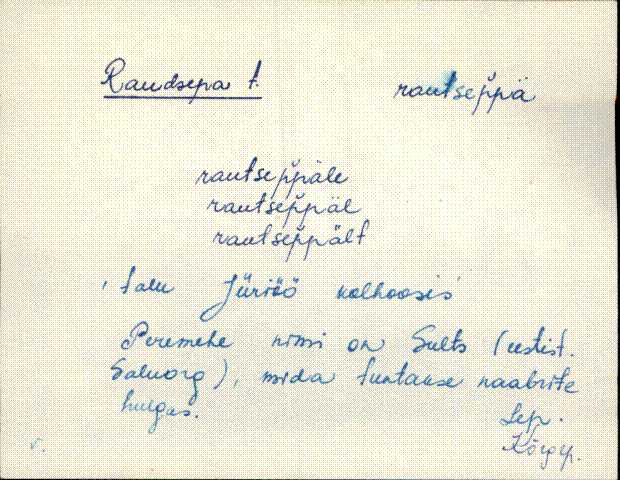 Raudsepa t. rautsep̆p̆ä
rautsep̆p̆äle
rautsep̆p̆äl
rautsep̆p̆ält
' talu Jüriöö kolhoosis'
Peremehe nimi on Sults (eestist.
Saluorg), mida tuntakse naabrite
hulgas.
Lep.
Kõrgep.
v.